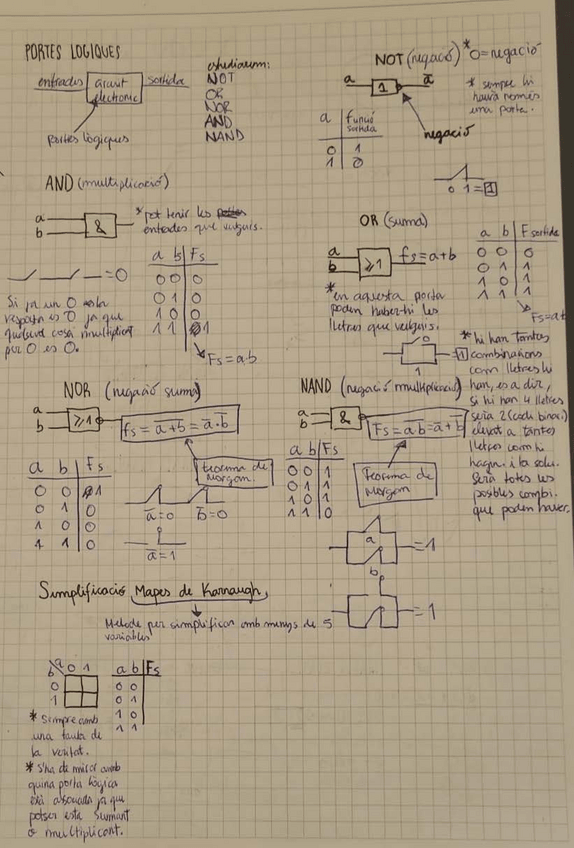 PORTES LOGIQUES
entrades
grant
electronic
sortida
portes lògiques
estudiarem:
NOT
OR
NOR
AND
NAND
NOT (negació) *O=negació
a 1 a̅
* sempre hi
haurà només
una porta.
negació
a funció
sortida
0 1
1 0
0 1=1
AND (multiplicació)
a
b
&
* pot tenir les
entrades que vulguis.
=0
Si ja un 0 esta
resposta es 0 ja que
qualsevol cosa multiplicat
per 0 es 0.
a b Fs
0 0 0
0 1 0
1 0 0
1 1 1
Fs=a·b
OR (suma)
a
b
≥1
fs=a+b
*en aquesta porta
poden haber-hi les
lletres que vulguis.
0
1
1
a b F sortida
0 0 0
0 1 1
1 0 1
1 1 1
Fs=a+b
* hi han tantes
combinacions
com lletres hi
han, es a dir,
si hi han 4 lletres
seria 2 (codi binari)
elevat a tantes
lletres com hi
hagin i la solu.
Serà totes les
posbles combi.
que poden haver.
NOR (negació suma)
a
b
≥1
fs = a̅+̅b̅ = a̅·b̅
teorema de
Morgan.
a b Fs
0 0 1
0 1 0
1 0 0
1 1 0
a̅=0 b̅=0
a̅=1
NAND (negació multiplicació)
a
b
&
Fs=a̅·̅b̅=a̅+b̅
Teorema de
Morgan
a b Fs
0 0 1
0 1 1
1 0 1
1 1 0
a
b
=1
=1
Simplificació Mapes de Karnaugh,
Mètode per simplificar amb menys de 5
variables
b a 0 1
0
1
a b Fs
0 0
0 1
1 0
1 1
* Sempre amb
una taula de
la veritat.
* S'ha de mirar amb
quina porta lògica
està abocada ja que
potser esta sumant
o multiplicant.